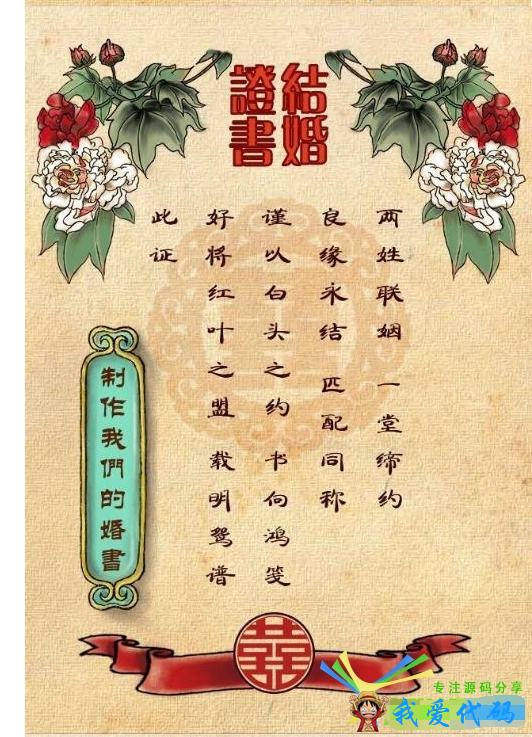 結婚
證書
两姓联姻 一堂缔约
良缘永结 匹配同称
谨以白头之约 书向鸿笺
好将红叶之盟 载明鸳谱
此证
制作我們的婚書
專注源码分享
我爱代码